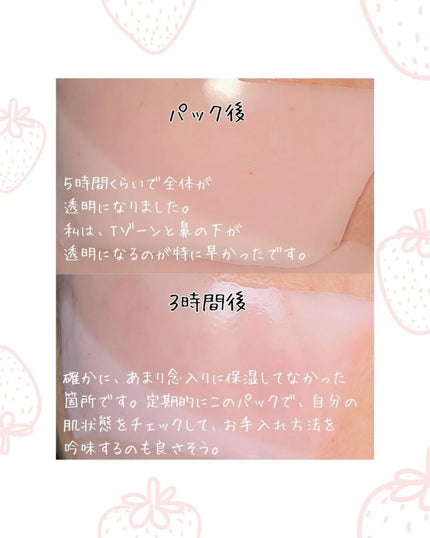 パック後
5時間くらいで全体が
透明になりました。
私は、Tゾーンと鼻の下が
透明になるのが特に早かったです。
3時間後
確かに、あまり念入りに保湿してなかった
箇所です。定期的にこのパックで、自分の
肌状態をチェックして、お手入れ方法を
吟味するのも良さそう。